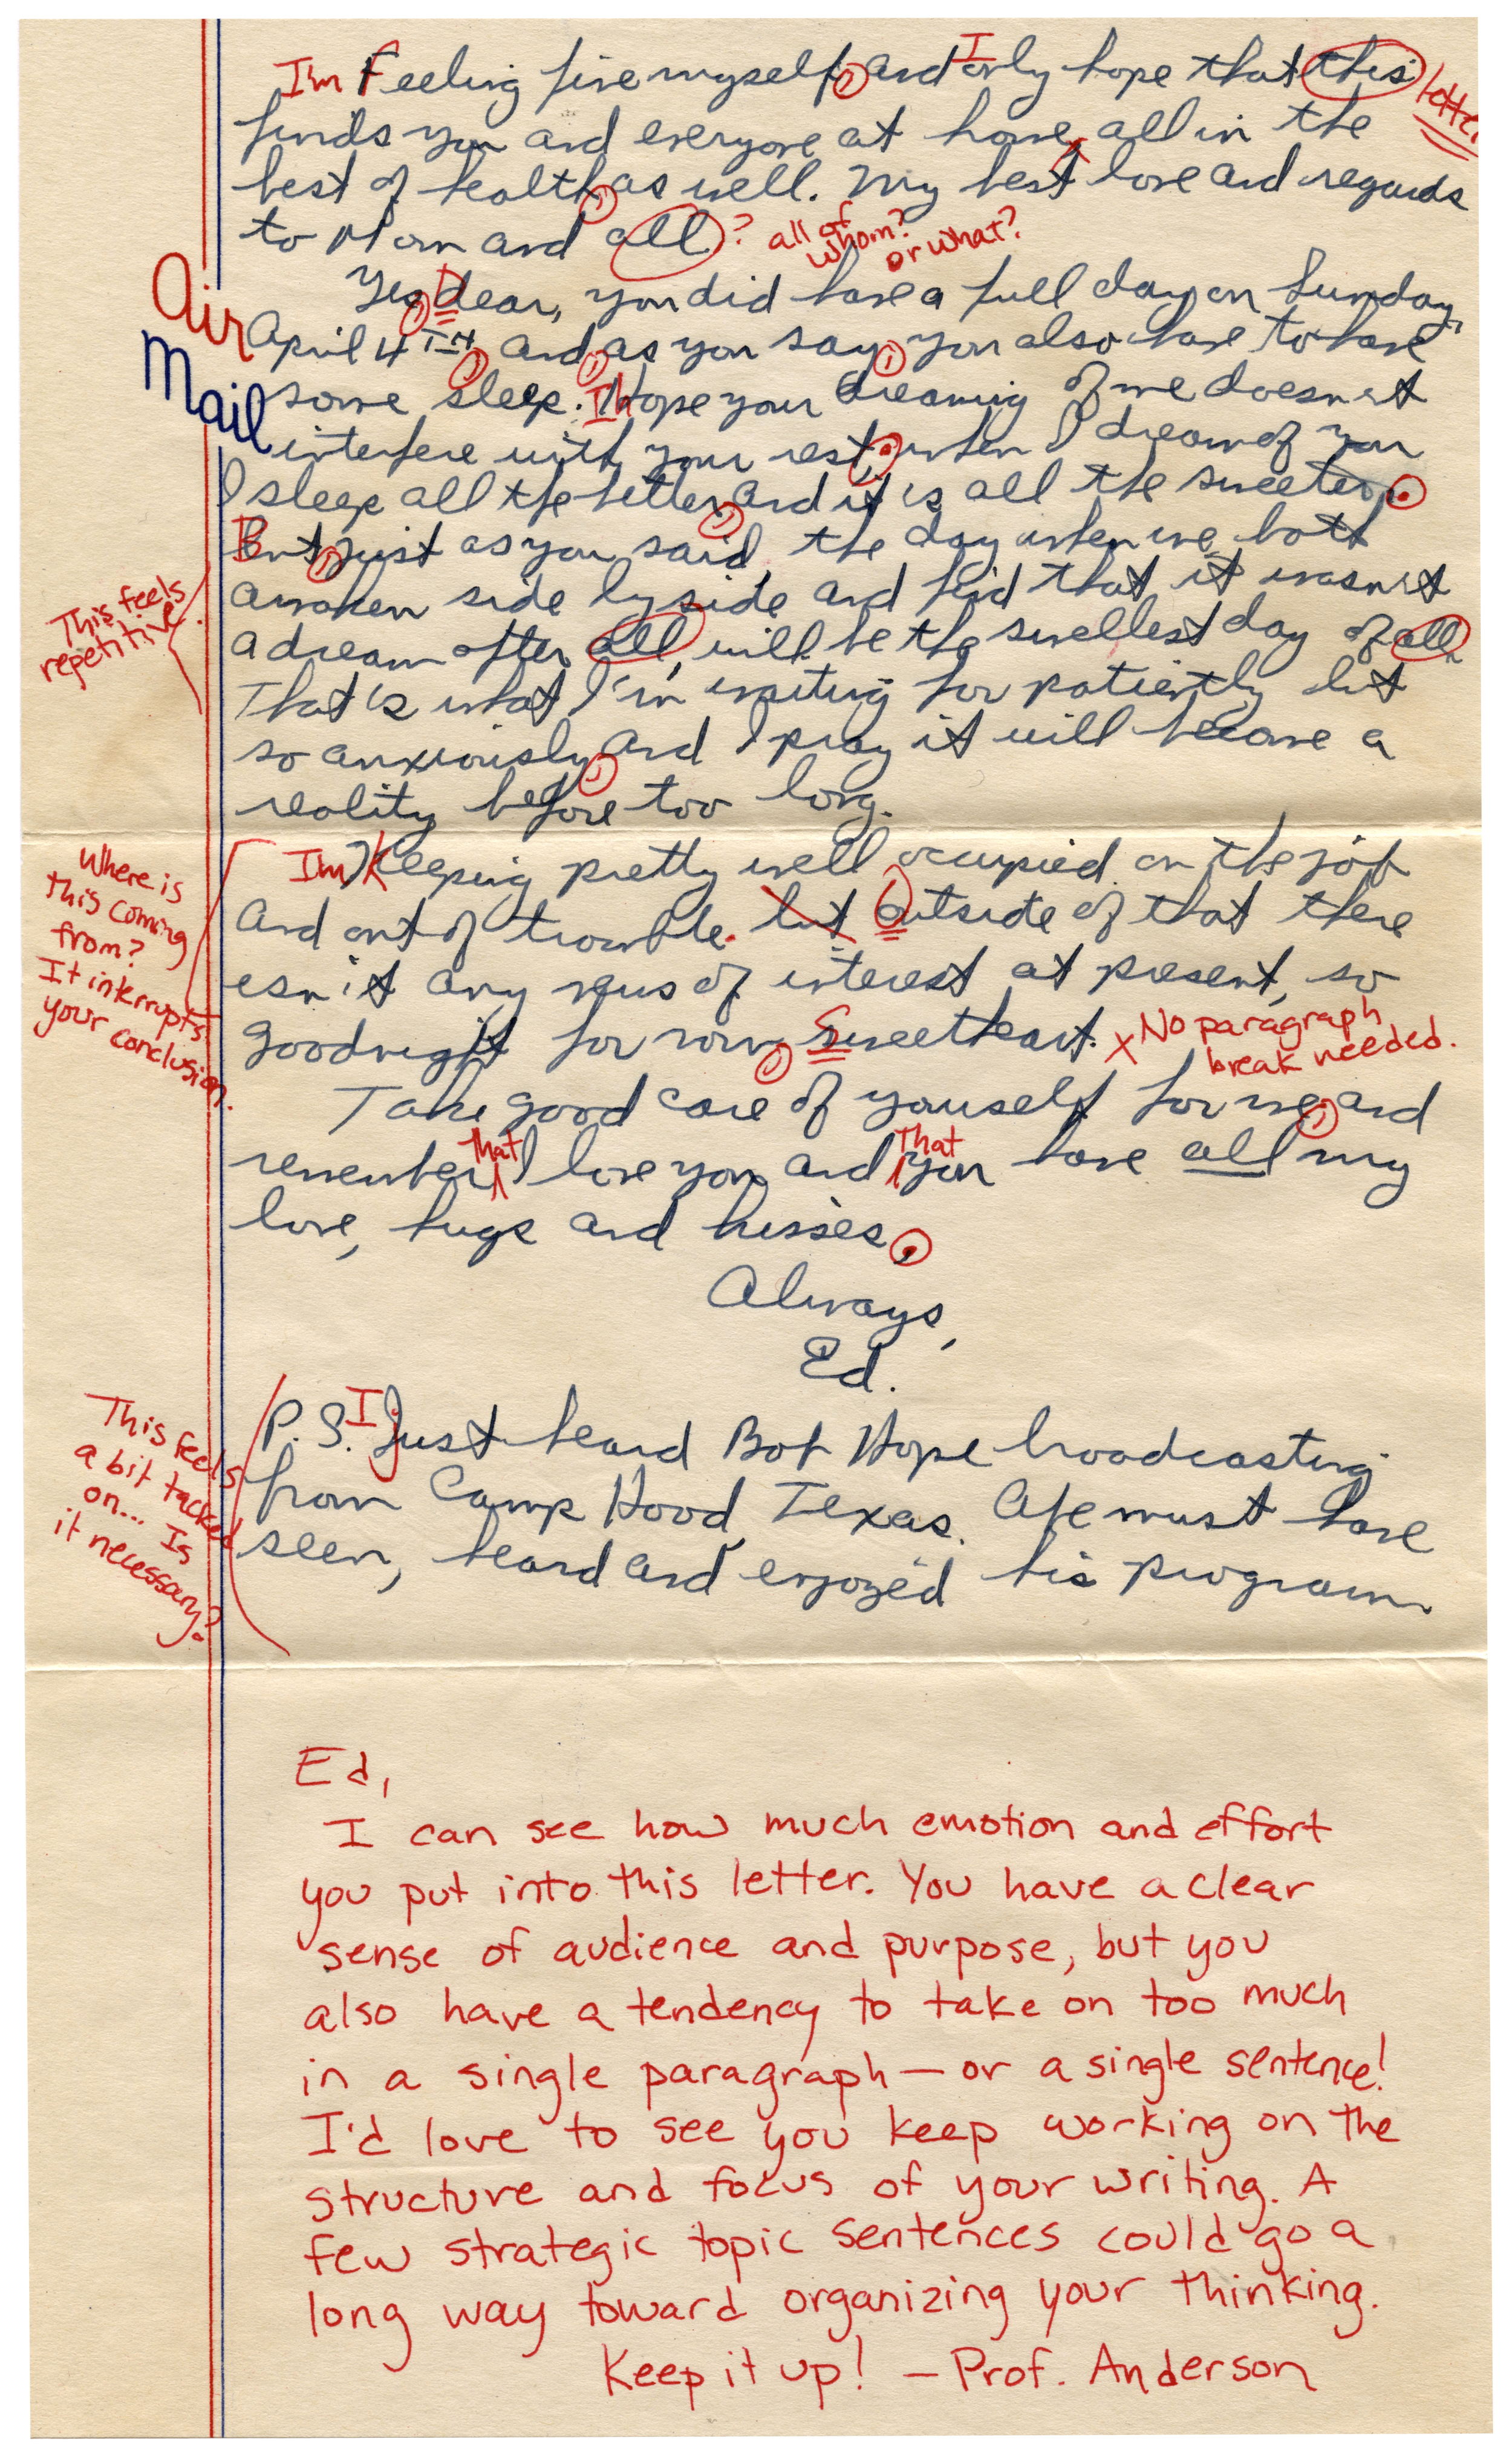 I'm Feeling fine myself, and I only hope that this letter
finds you and everyone at home, all in the
best of health, as well. My best love and regards
to Mom and all ? all of whom? or what?
Yes, Dear, you did have a full day on Sunday,
Air
Mail
April 4TH, and, as you say, you also have to have
some sleep. I Hope your dreaming of me doesn't
interfere with your rest. when I dream of you
I sleep all the better, and it is all the sweeter.
But, just as you said, the day when we both
awaken side by side and find that it wasn't
This feels
repetitive.
a dream after all, will be the swellest day of all.
That's what I'm waiting for patiently but
so anxiously, and I pray it will become a
reality before too long.
I'm Keeping pretty well occupied on the job
and out of trouble. but Outside of that there
Where is
this coming
from?
It interrupts
your conclusion.
isn't any news of interest at present, so
goodnight for now, Sweetheart. x No paragraph
break needed.
Take good care of yourself for me, and
remember that I love you and that you have all my
love, hugs and kisses.
Always,
Ed.
P.S. I Just heard Bob Hope broadcasting
from Camp Hood, Texas. Abe must have
seen, heard and enjoyed his program.
This feels
a bit tacked
on... Is
it necessary?
Ed,
I can see how much emotion and effort
you put into this letter. You have a clear
sense of audience and purpose, but you
also have a tendency to take on too much
in a single paragraph—or a single sentence!
I'd love to see you keep working on the
structure and focus of your writing. A
few strategic topic sentences could go a
long way toward organizing your thinking.
Keep it up! — Prof. Anderson